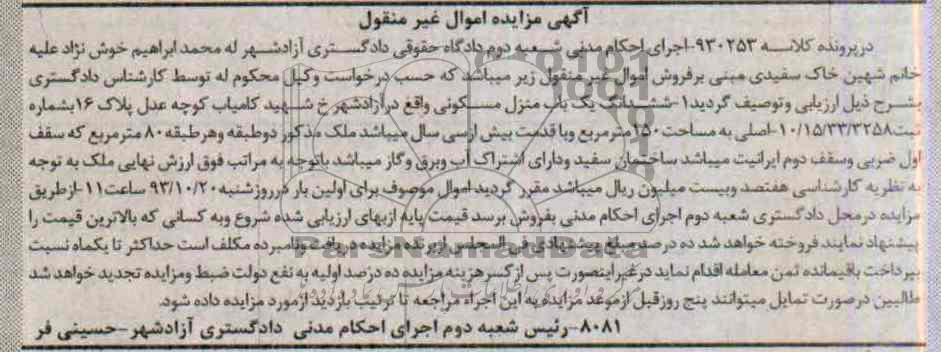 آگهی مزایده اموال غیر منقول
درپرونده کلاسه ۹۳۰۲۵۳-اجرای احکام مدنی شعبه دوم دادگاه حقوقی دادگستری آزادشهر له محمد ابراهیم خوش نژاد علیه
خانم شهین خاک سفیدی مبنی برفروش اموال غیر منقول زیر میباشد که حسب درخواست وکیل محکوم له توسط کارشناس دادگستری
بشرح ذیل ارزیابی وتوصیف گردید۱-ششدانگ یک باب منزل مسکونی واقع درآزادشهر خ شهید کامیاب کوچه عدل پلاک ۱۶بشماره
ثبت۱۰/۱۵/۳۳/۳۲۵۸-اصلی به مساحت۲۵۰مترمربع وبا قدمت بیش ازسی سال میباشد ملک مذکور دوطبقه وهرطبقه ۸۰ مترمربع که سقف
اول ضربی وسقف دوم ایرانیت میباشد ساختمان سفید ودارای اشتراک آب وبرق وگاز میباشد باتوجه به مراتب فوق ارزش نهایی ملک به توجه
به نظریه کارشناسی هفتصد وبیست میلیون ریال میباشد مقرر گردید اموال موصوف برای اولین بار درروزشنبه ۹۳/۱۰/۲۰ ساعت۱۱-ازطریق
مزایده درمحل دادگستری شعبه دوم اجرای احکام مدنی بفروش برسد قیمت پایه ازبهای ارزیابی شده شروع وبه کسانی که بالاترین قیمت را
پیشنهاد نمایند فروخته خواهد شد ده درصد مبلغ پیشنهادی فی المجلس ازبرنده مزایده دریافت ونامبرده مکلف است حداکثر تا یکماه نسبت
بپرداخت باقیمانده ثمن معامله اقدام نماید درغیراینصورت پس ازکسرهزینه مزایده ده درصد اولیه به نفع دولت ضبط ومزایده تجدید خواهد شد
طالبین درصورت تمایل میتوانند پنج روزقبل ازموعد مزایده به این اجراء مراجعه تا ترتیب بازدید ازمورد مزایده داده شود.
۸۰۸۱-رئیس شعبه دوم اجرای احکام مدنی دادگستری آزادشهر-حسینی فر
ParsNamadData